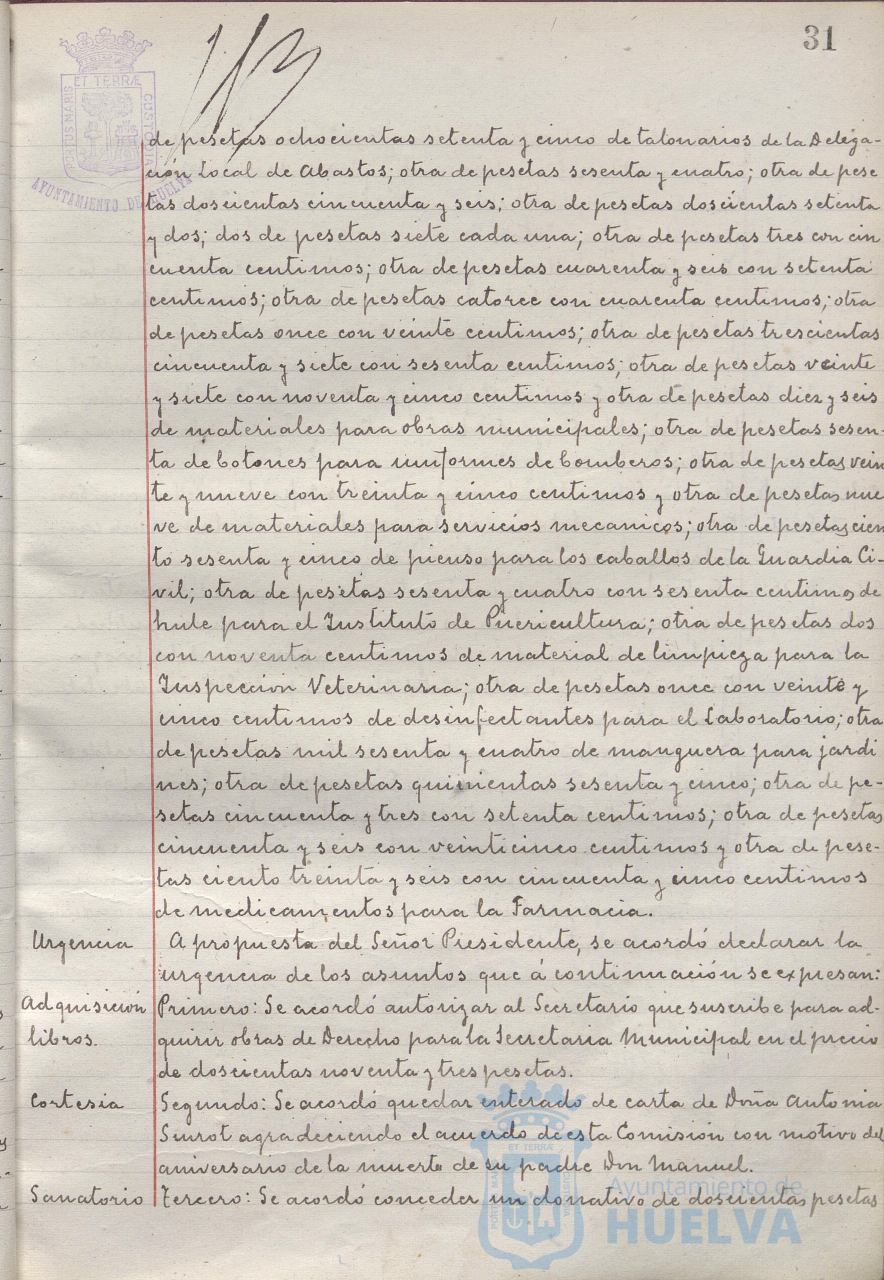 31
PORTUS MARIS ET TERRÆ CUSTODIA
AYUNTAMIENTO DE HUELVA
de pesetas ochocientas setenta y cinco de talonarios de la Delega-
ción Local de Abastos; otra de pesetas sesenta y cuatro; otra de pese
tas doscientas cincuenta y seis; otra de pesetas doscientas setenta
y dos; dos de pesetas siete cada una; otra de pesetas tres con cin
cuenta centimos; otra de pesetas cuarenta y seis con setenta
centimos; otra de pesetas catorce con cuarenta centimos; otra
de pesetas once con veinte centimos; otra de pesetas trescientas
cincuenta y siete con sesenta centimos; otra de pesetas veinte
y siete con noventa y cinco centimos y otra de pesetas diez y seis
de materiales para obras municipales; otra de pesetas sesen-
ta de botones para uniformes de bomberos; otra de pesetas vein
te y nueve con treinta y cinco centimos y otra de pesetas nue
ve de materiales para servicios mecanicos; otra de pesetas cien
to sesenta y cinco de pienso para los caballos de la Guardia Ci-
vil; otra de pesetas sesenta y cuatro con sesenta centimos de
hule para el Instituto de Puericultura; otra de pesetas dos
con noventa centimos de material de limpieza para la
Inspección Veterinaria; otra de pesetas once con veinte y
cinco centimos de desinfectantes para el Laboratorio; otra
de pesetas mil sesenta y cuatro de manguera para jardi
nes; otra de pesetas quinientas sesenta y cinco; otra de pe-
setas cincuenta y tres con setenta centimos; otra de pesetas
cincuenta y seis con veinticinco centimos y otra de pese-
tas ciento treinta y seis con cincuenta y cinco centimos
de medicamentos para la Farmacia.
Urgencia A propuesta del Señor Presidente, se acordó declarar la
urgencia de los asuntos que á continuación se expresan:
Adquisición Primero: Se acordó autorizar al Secretario que suscribe para ad-
libros. quirir obras de Derecho para la Secretaria Municipal en el precio
de doscientas noventa y tres pesetas.
Cortesia Segundo: Se acordó quedar enterado de carta de Doña Antonia
Siurot agradeciendo el acuerdo de esta Comisión con motivo del
aniversario de la muerte de su padre Don Manuel.
Sanatorio Tercero: Se acordó conceder un donativo de doscientas pesetas
Ayuntamiento de
HUELVA